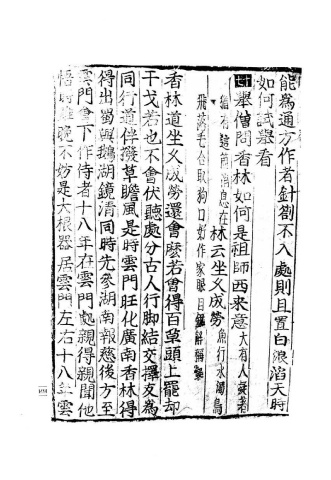 能爲通方作者針劄不入處則且置白浪滔天時
如何試舉看
十七舉僧問香林如何是祖師西來意大有人疑著
猶有這箇消息在林云坐乆成勞魚行水濁鳥
飛落毛合取狗口好作家眼目鋸解稱鎚
香林道坐乆成勞還會麽若會得百草頭上罷却
干戈若也不會伏聽處分古人行脚結交擇友爲
同行道伴撥草瞻風是時雲門旺化廣南香林得
得出蜀與鵝湖鏡清同時先參湖南報慈後方至
雲門會下作侍者十八年在雲門處親得親聞他
悟時雖晚不妨是大根器居雲門左右十八年雲